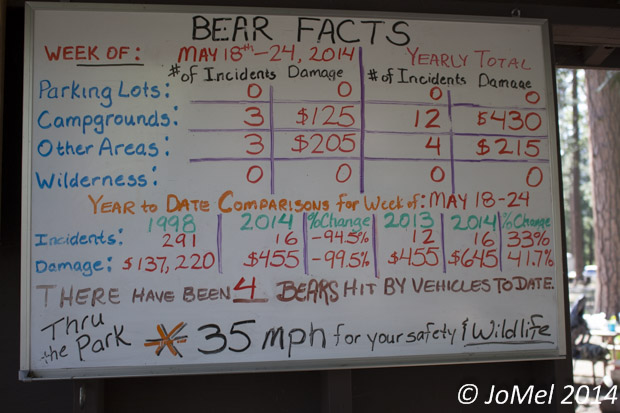 BEAR FACTS
WEEK OF: MAY 18th-24, 2014 YEARLY TOTAL
# of Incidents Damage # of Incidents Damage
Parking Lots: 0 0 0 0
Campgrounds: 3 $125 12 $430
Other Areas: 3 $205 4 $215
Wilderness: 0 0 0 0
YEAR to DATE COMPARISONS for WEEK of: MAY 18-24
1998 2014 %Change 2013 2014 %Change
Incidents: 291 16 -94.5% 12 16 33%
Damage: $137,220 $455 -99.5% $455 $645 41.7%
THERE HAVE BEEN 4 BEARS HIT BY VEHICLES TO DATE.
Thru the Park * 35 mph for your safety & Wildlife
© JoMel 2014